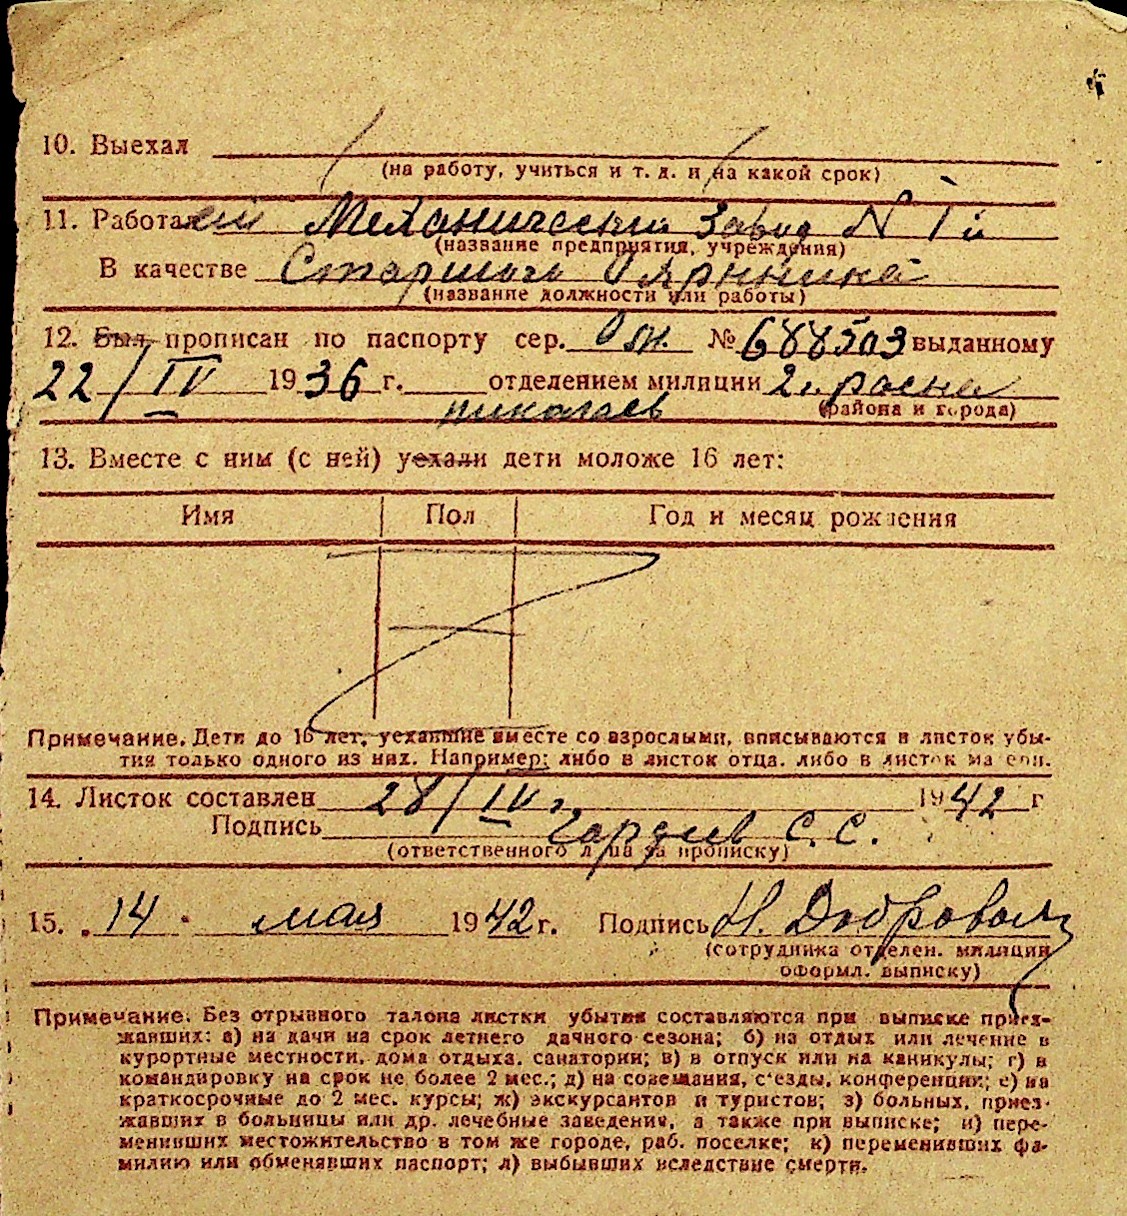 10. Выехал
(на работу, учиться и т. д. и на какой срок)
11. Работал Механический Завод N 1й
(название предприятия, учреждения)
В качестве Старшого
(название должности или работы)
12. Был прописан по паспорту сер. № 688503 выданному
22/IV 1936 г. отделением милиции 2
николаев (района и города)
13. Вместе с ним (с ней) уехали дети моложе 16 лет:
Имя Пол Год и месяц рождения
Примечание. Дети до 16 лет, уехавшие вместе со взрослыми, вписываются в листок убы-
тия только одного из них. Например: либо в листок отца, либо в листок матери.
14. Листок составлен 28/IV 1942 г
Подпись С. С.
(ответственного лица за прописку)
15. 14 мая 1942 г. Подпись Н. Доброволь
(сотрудника отделен. милиции
оформл. выписку)
Примечание. Без отрывного талона листки убытия составляются при выписке приез-
жавших: а) на дачи на срок летнего дачного сезона; б) на отдых или лечение в
курортные местности, дома отдыха, санатории; в) в отпуск или на каникулы; г) в
командировку на срок не более 2 мес.; д) на совещания, с'езды, конференции; е) на
краткосрочные до 2 мес. курсы; ж) экскурсантов и туристов; з) больных, приез-
жавших в больницы или др. лечебные заведения, а также при выписке; и) пере-
менивших местожительство в том же городе, раб. поселке; к) переменивших фа-
милию или обменявших паспорт; л) выбывших вследствие смерти.